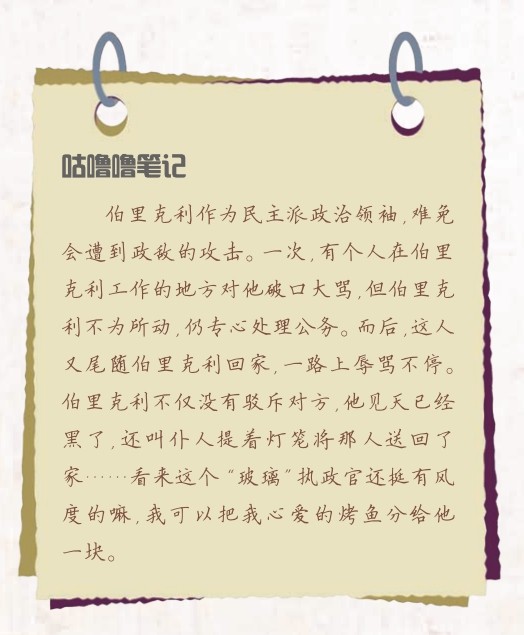 咕噜噜笔记
伯里克利作为民主派政治领袖,难免
会遭到政敌的攻击。一次,有个人在伯里
克利工作的地方对他破口大骂,但伯里克
利不为所动,仍专心处理公务。而后,这人
又尾随伯里克利回家,一路上辱骂不停。
伯里克利不仅没有驳斥对方,他见天已经
黑了,还叫仆人提着灯笼将那人送回了
家……看来这个“玻璃”执政官还挺有风
度的嘛,我可以把我心爱的烤鱼分给他
一块。